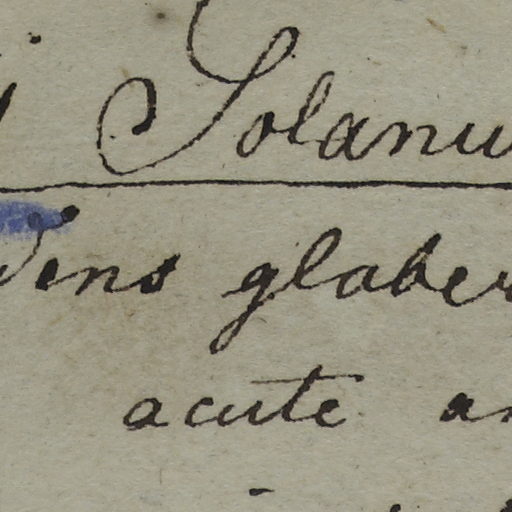 Solanu
dens glaber
acute an